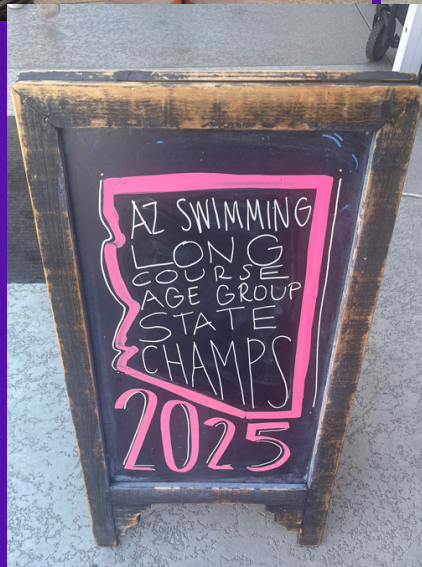 AZ SWIMMING
LONG
COURSE
AGE GROUP
STATE
CHAMPS
2025